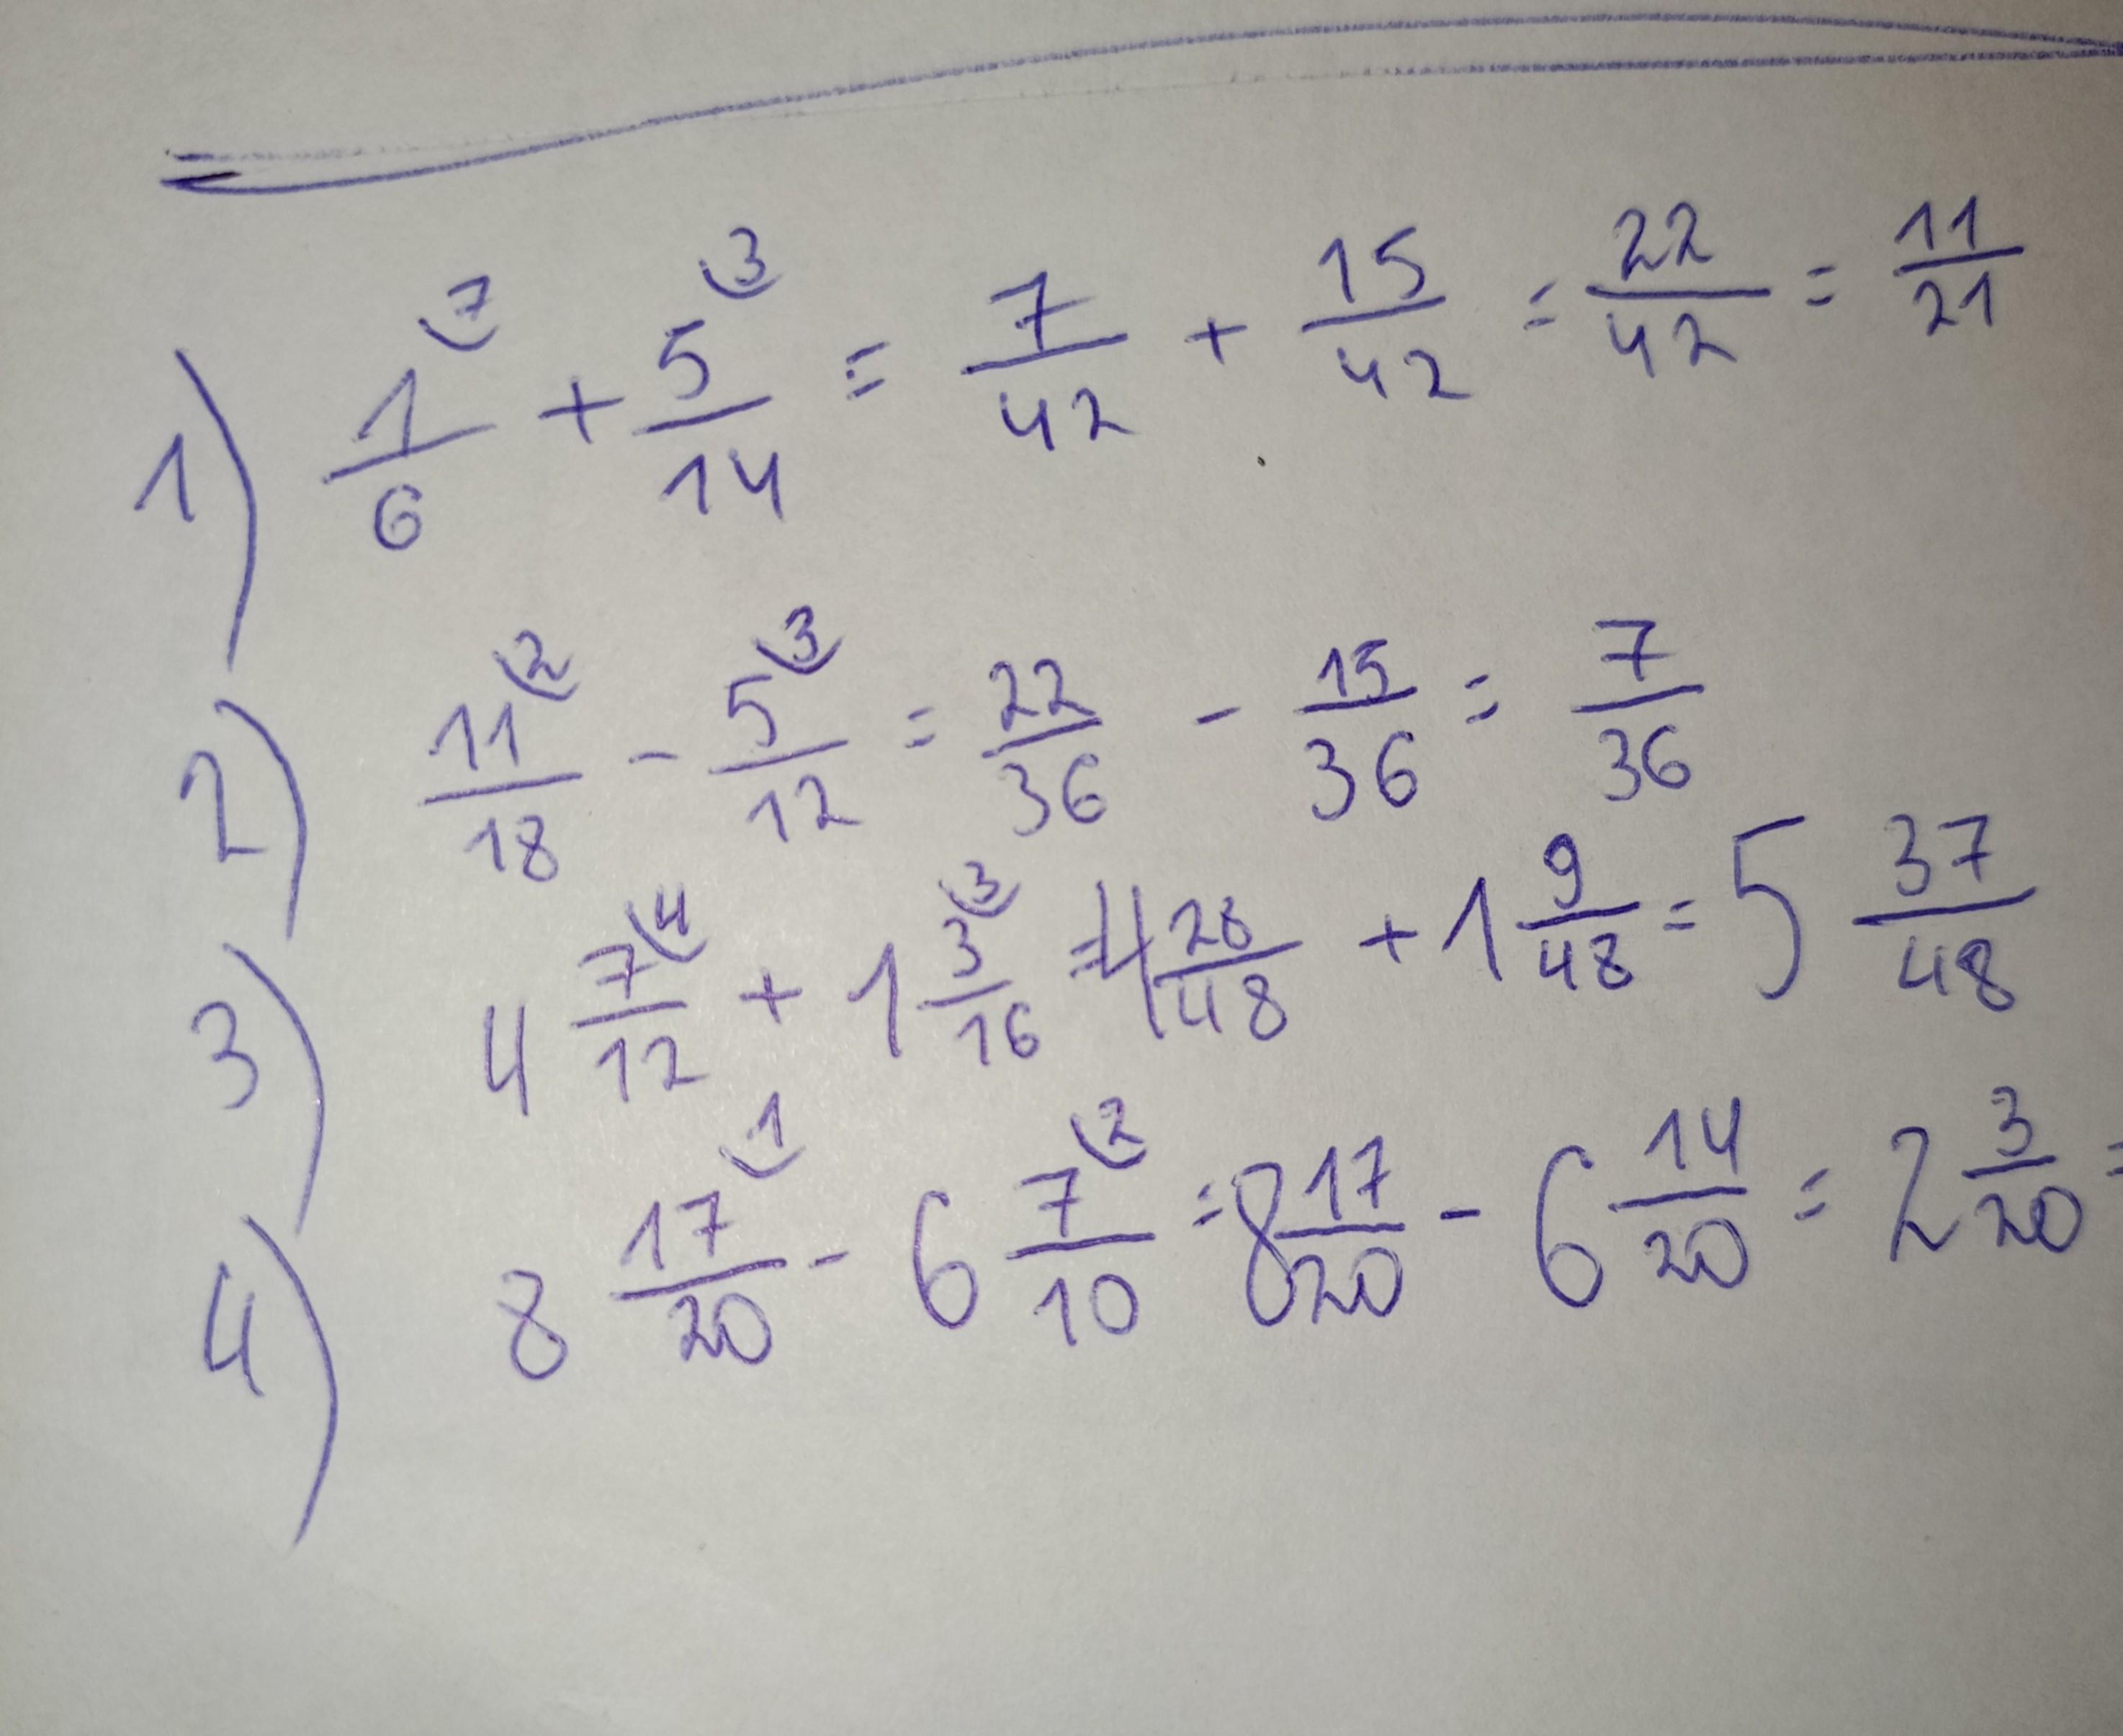 1) 1/6 ⁷ + 5/14 ³ = 7/42 + 15/42 = 22/42 = 11/21
2) 11/18 ² - 5/12 ³ = 22/36 - 15/36 = 7/36
3) 4 7/12 ⁴ + 1 3/16 ³ = 4 28/48 + 1 9/48 = 5 37/48
4) 8 17/20 ¹ - 6 7/10 ² = 8 17/20 - 6 14/20 = 2 3/20 =